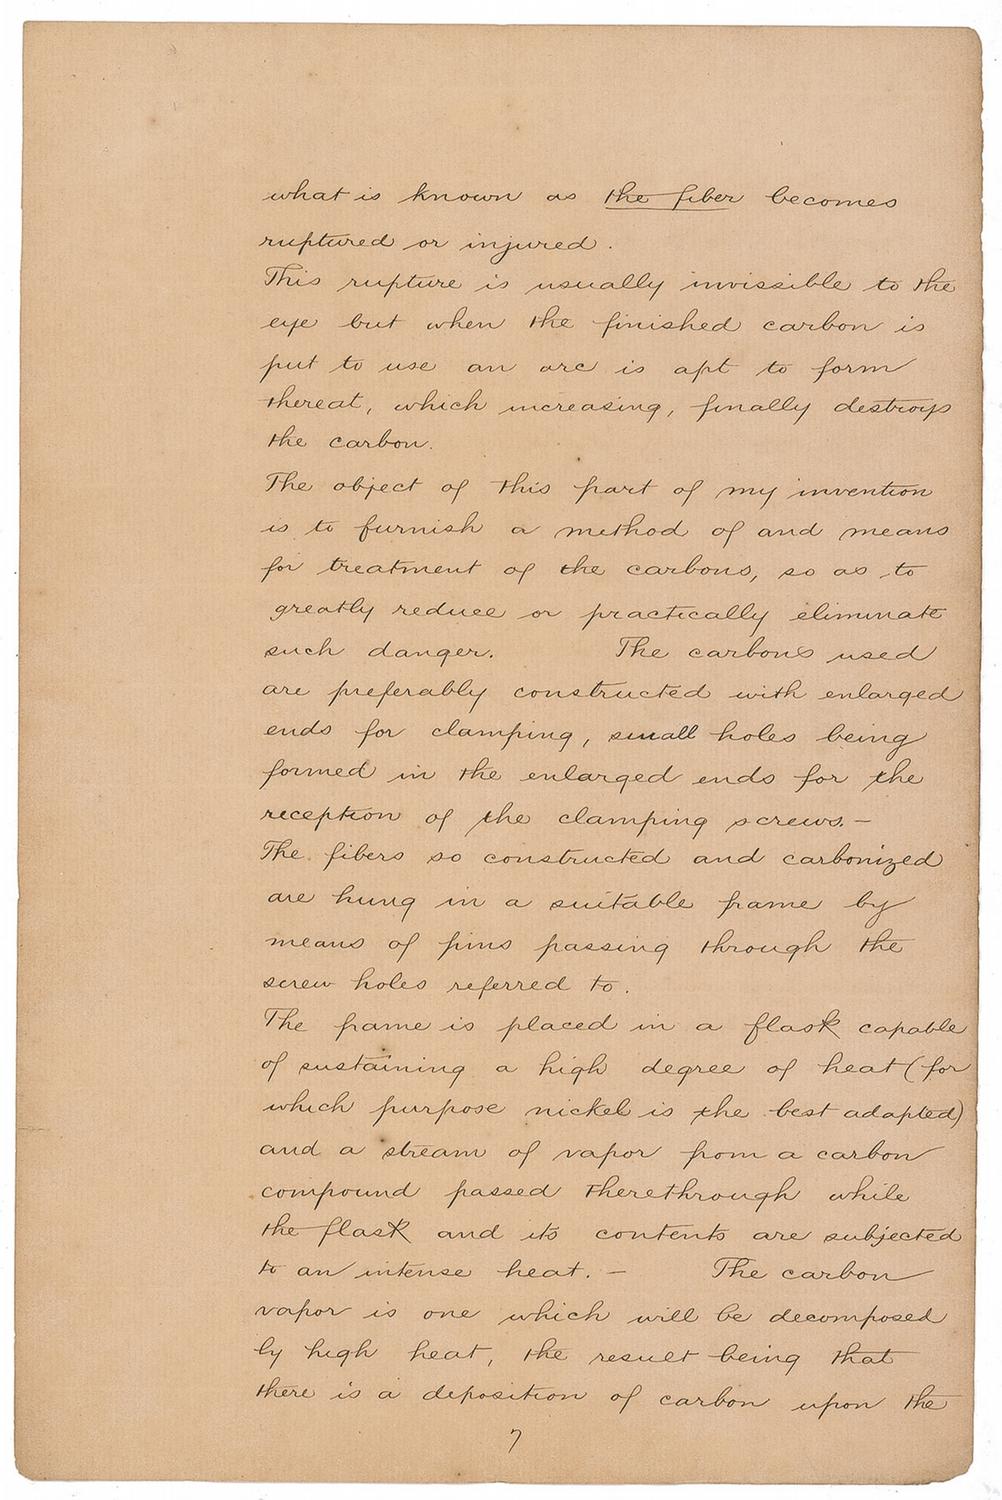 what is known as the fiber becomes
ruptured or injured.
This rupture is usually invissible to the
eye but when the finished carbon is
put to use an arc is apt to form
thereat, which increasing, finally destroys
the carbon.
The object of this part of my invention
is to furnish a method of and means
for treatment of the carbons, so as to
greatly reduce or practically eliminate
such danger. The carbons used
are preferably constructed with enlarged
ends for clamping, small holes being
formed in the enlarged ends for the
reception of the clamping screws.—
The fibers so constructed and carbonized
are hung in a suitable frame by
means of pins passing through the
screw holes referred to.
The frame is placed in a flask capable
of sustaining a high degree of heat (for
which purpose nickel is the best adapted)
and a stream of vapor from a carbon
compound passed therethrough while
the flask and its contents are subjected
to an intense heat. — The carbon
vapor is one which will be decomposed
by high heat, the result being that
there is a deposition of carbon upon the
7